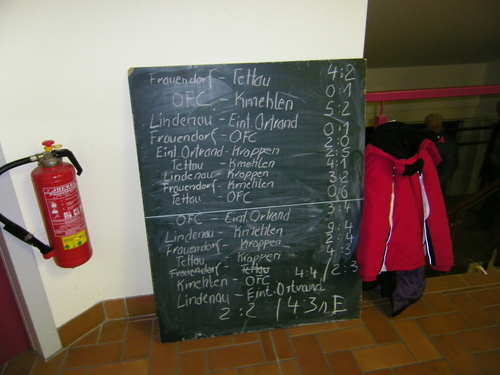 Frauendorf - Tettau 4:2
OFC - Kmehlen 0:1
Lindenau - Eint.Ortrand 5:2
Frauendorf - OFC 0:1
Eint.Ortrand - Kroppen
Tettau - Kmehlen
Lindenau - Kroppen 4:1
Frauendorf - Kmehlen 3:2
Tettau - OFC 0:6
OFC - Eint.Ortrand 3:4
Lindenau - Kmehlen 9:4
Frauendorf - Kroppen
Tettau - Kroppen 4:3
Frauendorf - Tettau
Kmehlen - OFC 4:4 / 2:3
Lindenau - Eint.Ortrand
2:2 / 4:3 n E